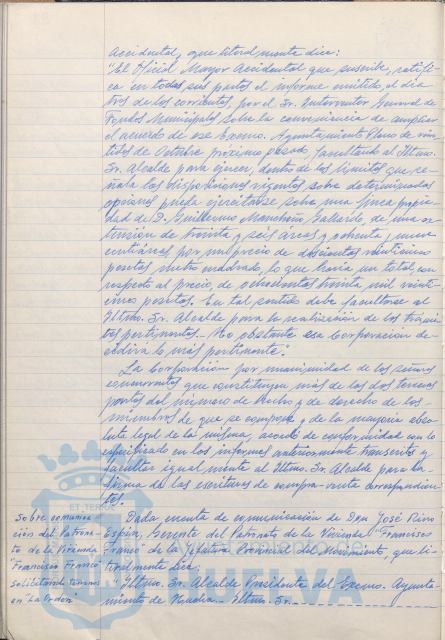 Accidental, que literalmente dice:
"El Oficial Mayor Accidental que suscribe, ratifi-
ca en todas sus partes el informe emitido el dia
tres de los corrientes, por el Sr. Interventor General de
Fondos Municipales, sobre la conveniencia de ampliar
el acuerdo de ese Excmo. Ayuntamiento Pleno de vein-
tidos de Octubre próximo pasado, facultando al Iltmo.
Sr. Alcalde para ejercer, dentro de los limites que se-
ñala las disposiciones vigentes sobre determinadas
opciones pueda ejercitarse sobre una finca propie-
dad de D. Guillermo Mancheño Gallardo de una ex-
tensión de treinta y seis áreas y ochenta y nueve
centiáreas por un precio de doscientas veinticinco
pesetas metro cuadrado, lo que haría un total, con
respecto al precio, de ochocientas treinta mil veinti-
cinco pesetas. En tal sentido debe facultarse al
Iltmo. Sr. Alcalde para la realización de los trámi-
tes pertinentes. No obstante esa Corporación de-
cidirá lo más pertinente".
La Corporación por unanimidad de los señores
concurrentes que constituyen más de las dos terceras
partes del número de hecho y de derecho de los
miembros de que se compone y de la mayoría abso-
luta legal de la misma, acordó de conformidad con lo
especificado en los informes anteriormente transcritos y
facultar igualmente al Iltmo. Sr. Alcalde para la
firma de las escrituras de compra-venta correspondien-
tes.
Sobre comunica-
ción del Patrona-
to de la Vivienda
"Francisco Franco"
solicitando terrenos
en "La Orden"
Dada cuenta de comunicación de Don José Pino
Espín, Gerente del Patronato de la Vivienda "Francisco
Franco" de la Jefatura Provincial del Movimiento, que li-
teralmente dice:
"Iltmo. Sr. Alcalde Presidente del Excmo. Ayunta-
miento de Huelva.- Iltmo. Sr.
HUELVA